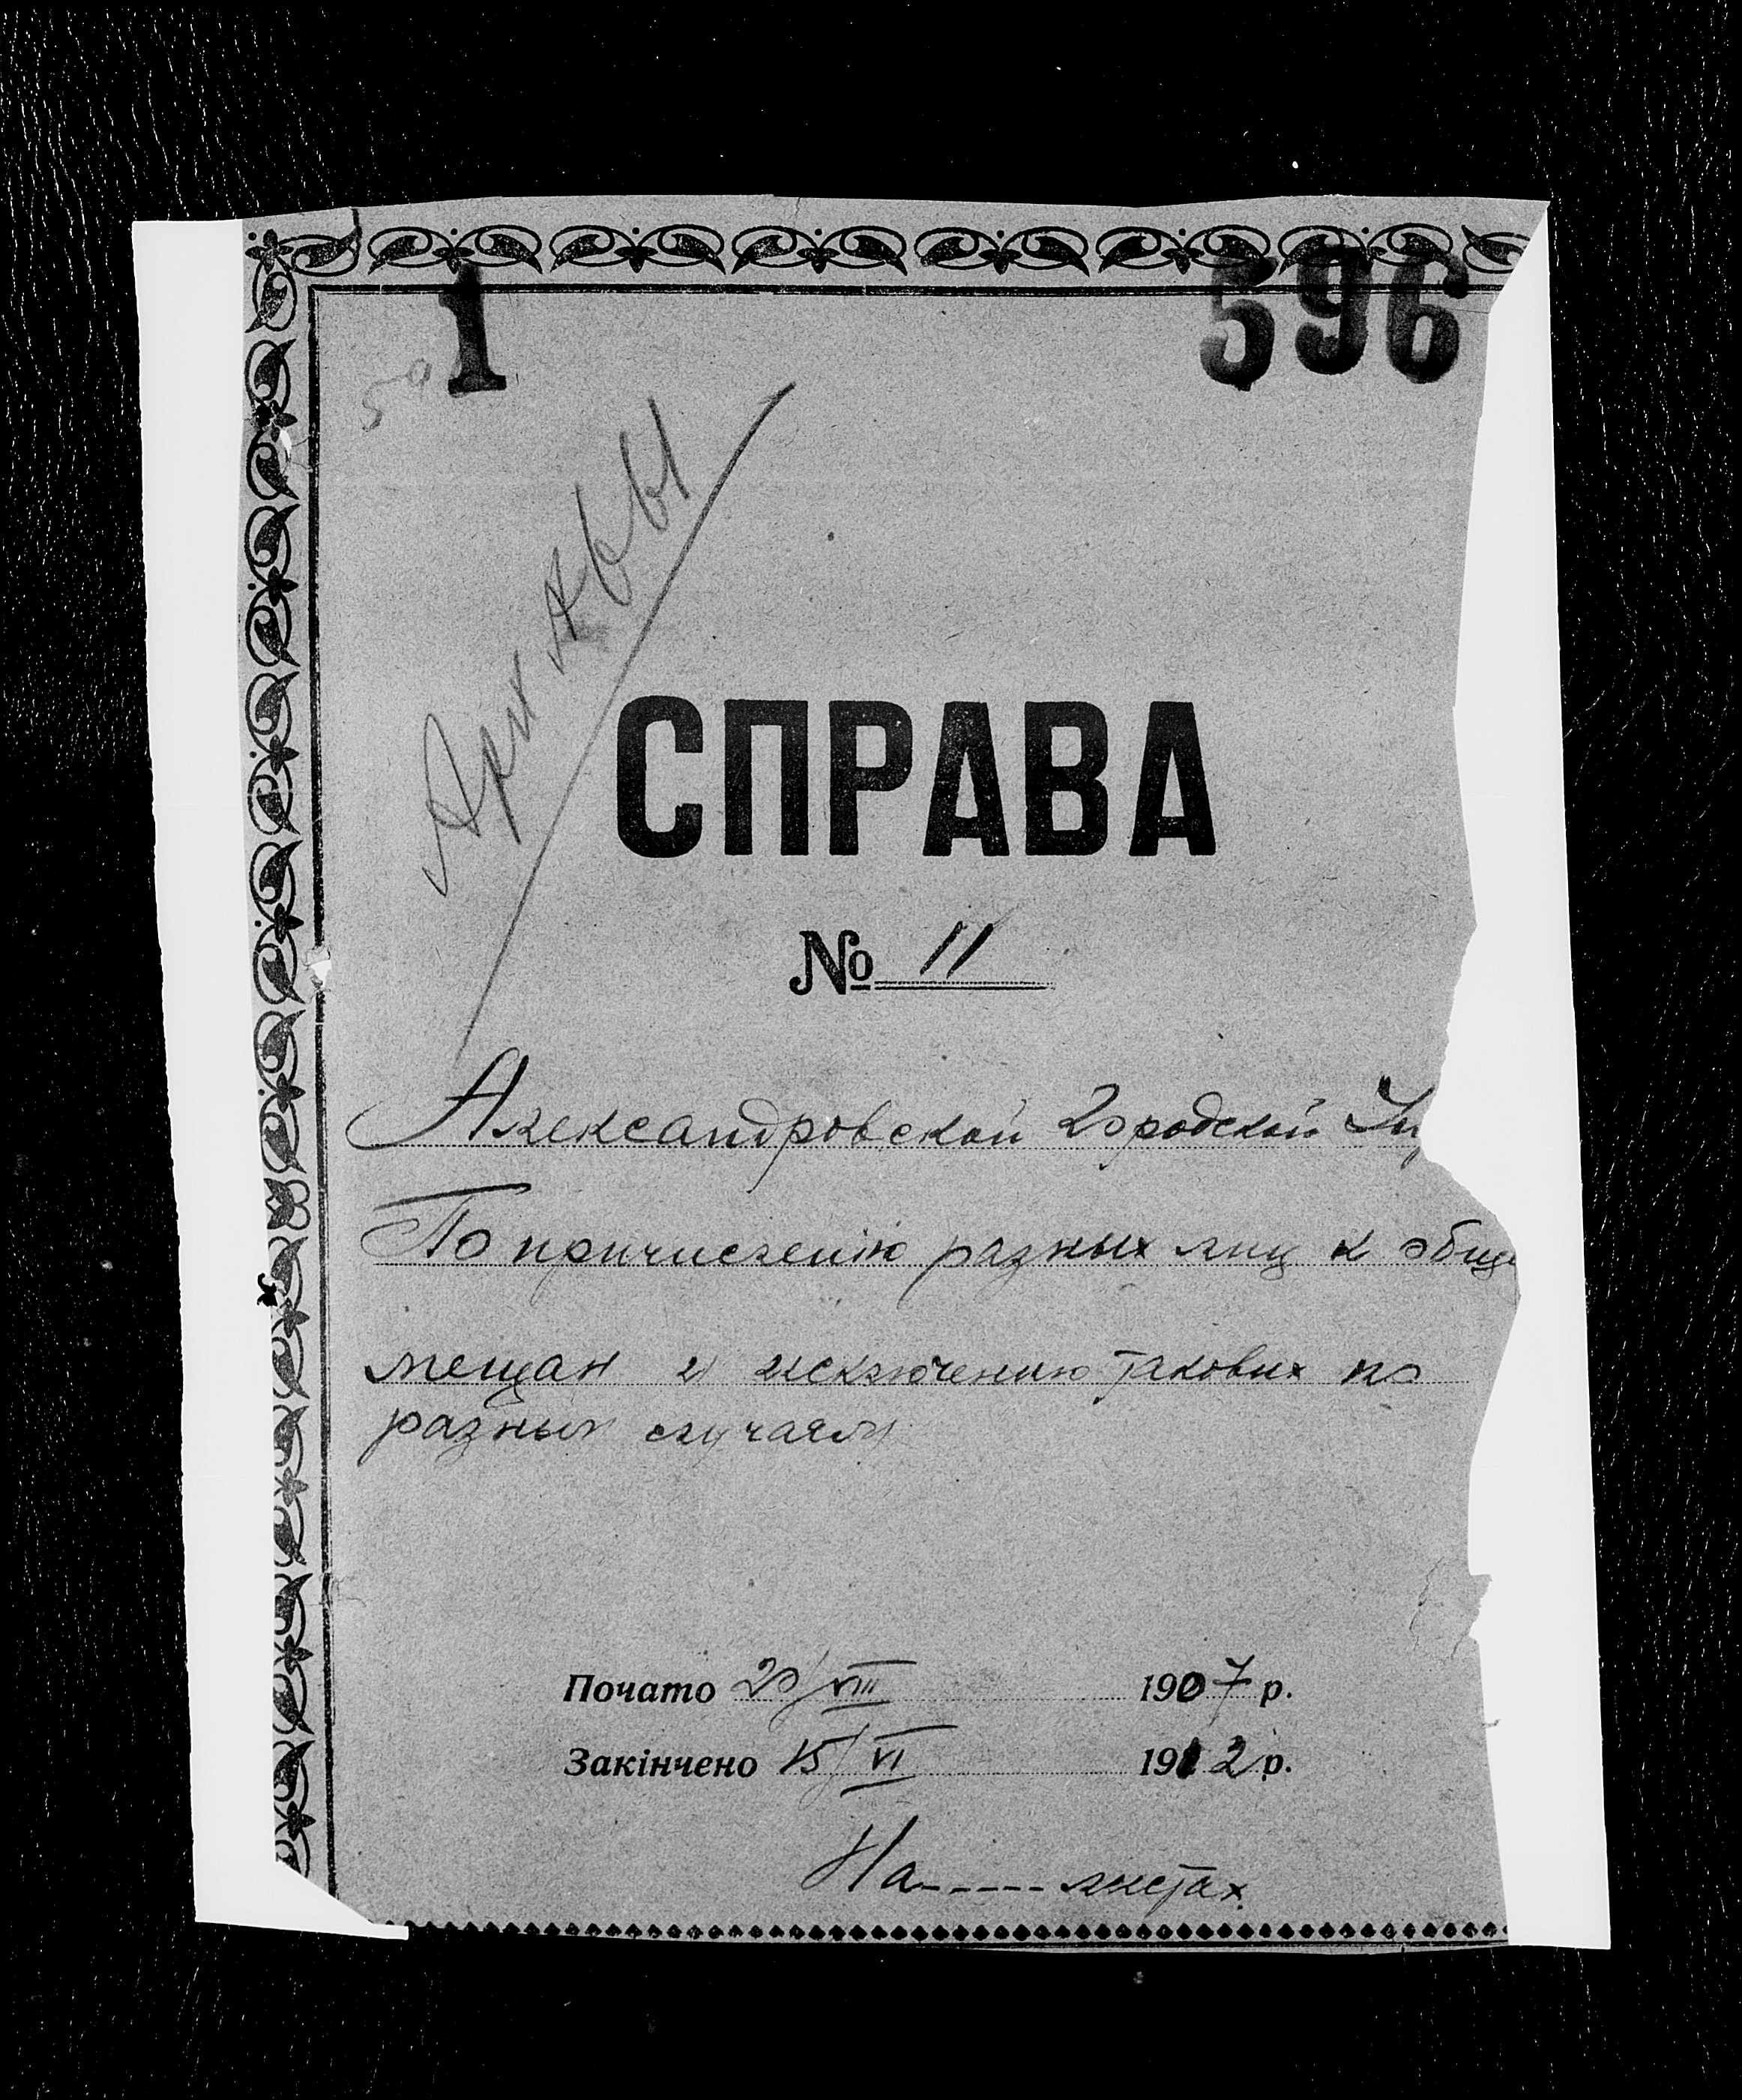 1 596
50
СПРАВА
№ 11
Александровской Городской Уп
По причислению разных лиц к обще
мещан и исключению таковых по
разным случаям
Почато 20/VIII 1907 р.
Закінчено 15/VI 1912 р.
На------ листах